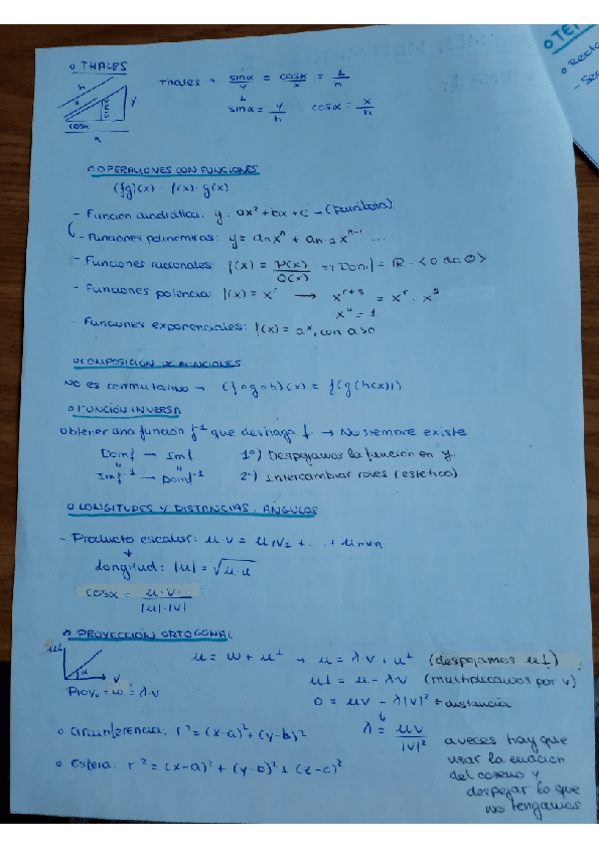 ○ THALES
Thales → senα/y = cosα/x = 1/h
senα = y/h cosα = x/h
h
y
cosα
○ OPERACIONES CON FUNCIONES
(fg)(x) = f(x)·g(x)
- Función cuadrática: y = ax² + bx + c → (parábola)
- Funciones polinómicas: y = anxⁿ + an-1xⁿ⁻¹ ...
- Funciones racionales: f(x) = P(x)/Q(x) => Domf = R - <0 de Q>
- Funciones potencia: f(x) = xʳ → xʳ⁺ˢ = xʳ · xˢ
x⁰ = 1
- Funciones exponenciales: f(x) = aˣ, con a>0
○ COMPOSICION DE FUNCIONES
NO es conmutativo → (fogoh)(x) = f(g(h(x)))
○ FUNCIÓN INVERSA
Obtener una función f⁻¹ que deshaga f. → No siempre existe
Domf → Imf 1º) Despejamos la función en y.
" "
Imf⁻¹ → Domf⁻¹ 2º) Intercambiar roles (estético)
○ LONGITUDES Y DISTANCIAS, ÁNGULOS
- Producto escalar: u·v = u1v1 + ... + unvn
↓
Longitud: |u| = √u·u
cosα = u·v/|u|·|v|
○ PROYECCIÓN ORTOGONAL
u = w + u⊥ → u = λv + u⊥ (despejamos u⊥)
u⊥ = u - λv (multiplicamos por v)
α
v
Proyv = w = λ·v
0 = uv - λ|v|² → distancia
○ Circunferencia: r² = (x-a)² + (y-b)²
λ = uv/|v|²
○ Esfera: r² = (x-a)² + (y-b)² + (z-c)²
a veces hay que
usar la ecuación
del coseno y
despejar lo que
no tengamos
○ TE